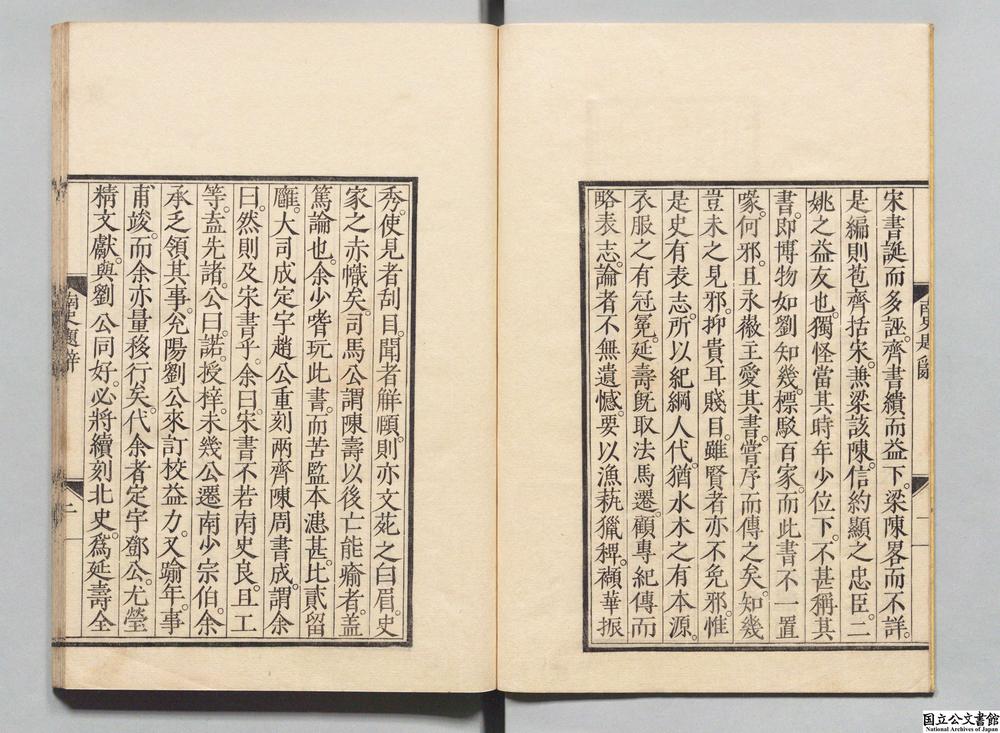 宋書誕而多誣。齊書繢而益下。梁陳畧而不詳。
是編則苞齊括宋。兼梁該陳。信約顯之忠臣。二
姚之益友也。獨怪當其時年少位下。不甚稱其
書。即博物如劉知幾。標駁百家。而此書不一置
喙。何邪。且永徽主愛其書。嘗序而傳之矣。知幾
豈未之見邪。抑貴耳賤目。雖賢者亦不免邪。惟
是史有表志。所以紀綱人代。猶水木之有本源。
衣服之有冠冕。延壽旣取法馬遷。顧專紀傳而
略表志。論者不無遺憾。要以漁秇獵稗。襭華振
秀。使見者刮目。聞者解頤。則亦文苑之白眉。史
家之赤幟矣。司馬公謂陳壽以後亡能瘉者。蓋
篤論也。余少嗜玩此書。而苦監本漶甚。比貳留
廱。大司成定宇趙公重刻兩齊陳周書成。謂余
曰。然則及宋書乎。余曰。宋書不若南史良。且工
等。盍先諸。公曰。諾。授梓。未幾公遷南少宗伯。余
承乏領其事。兗陽劉公來訂校益力。又踰年。事
甫竣。而余亦量移行矣。代余者定宇鄧公。尤瑩
精文獻。與劉公同好。必將續刻北史。爲延壽全
南史題辭
二
一
国立公文書館
National Archives of Japan